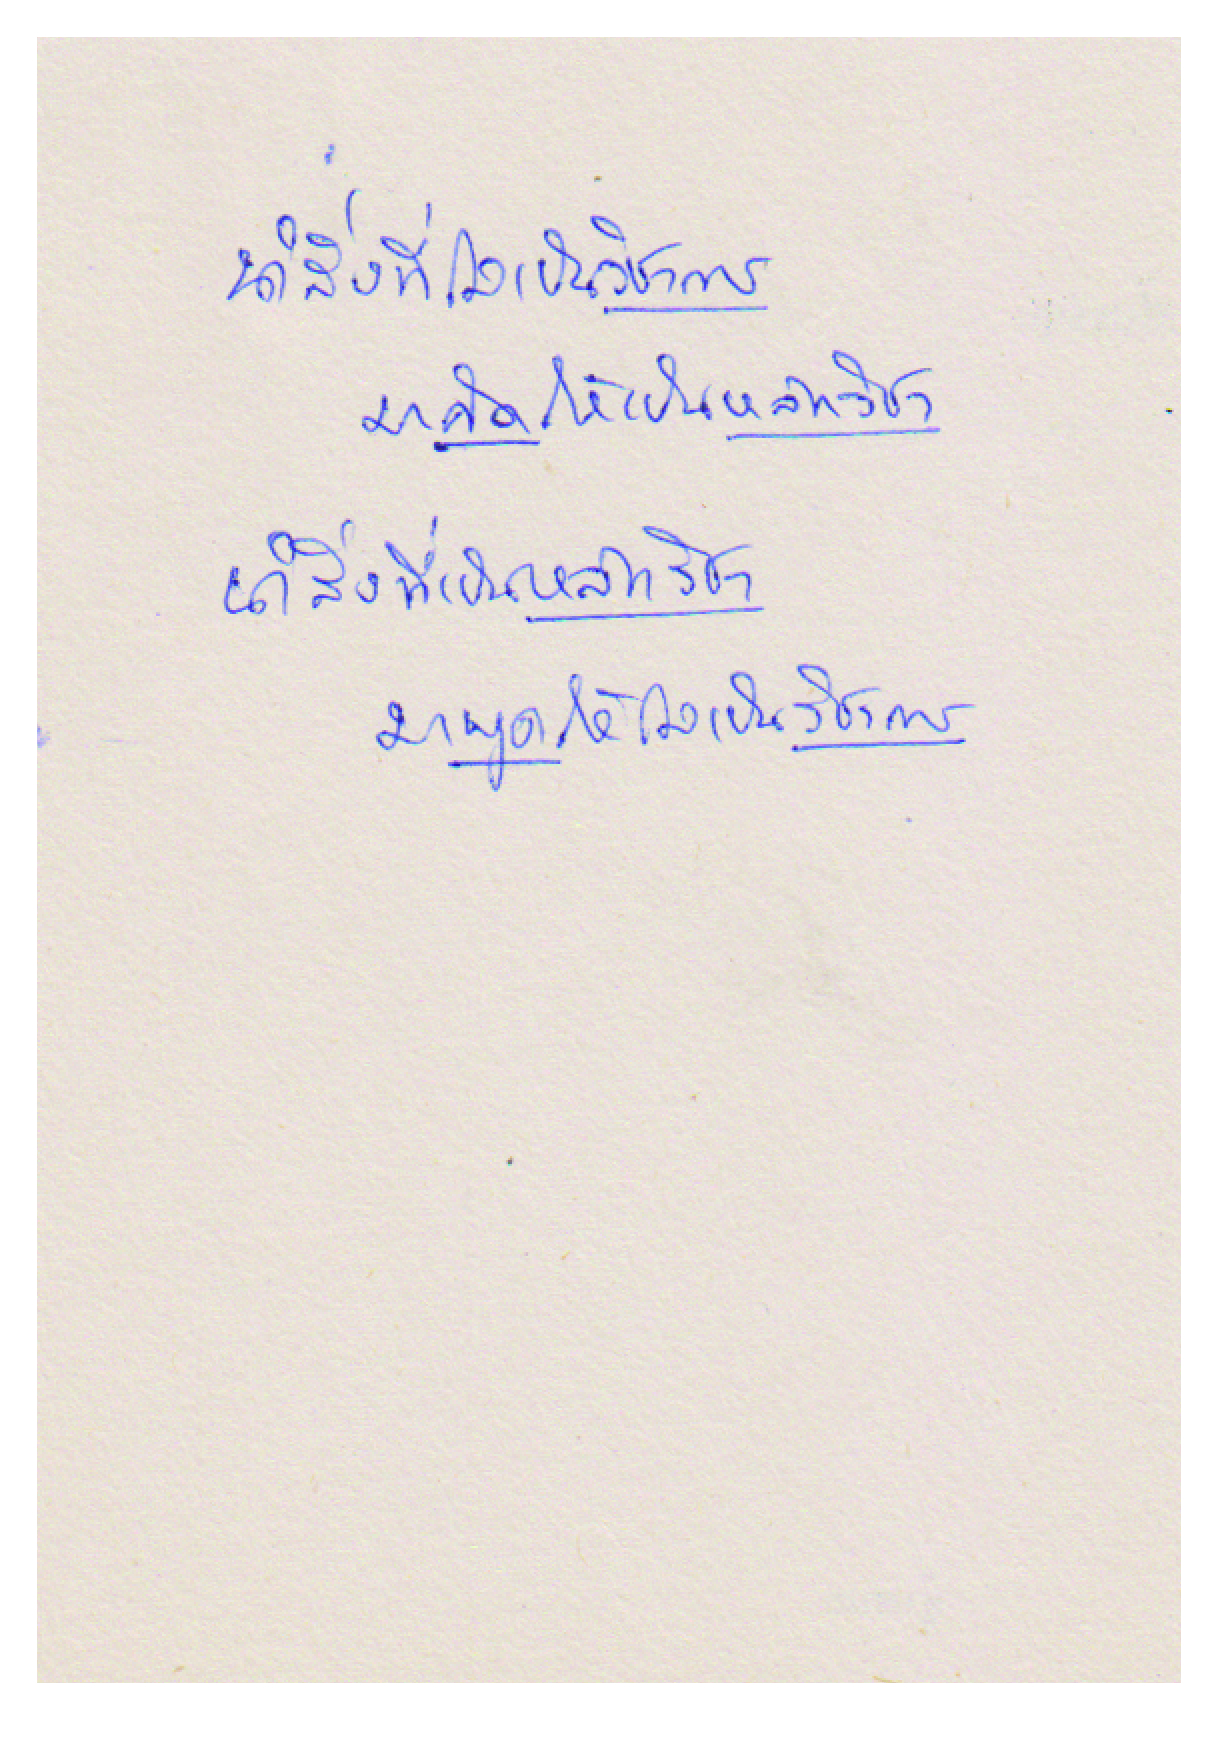 นำสิ่งที่ไม่เป็นวิชาการ
มาคิดให้เป็นหลักวิชา
นำสิ่งที่เป็นหลักวิชา
มาพูดให้ไม่เป็นวิชาการ